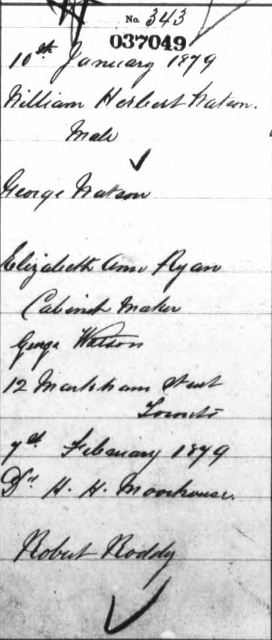 No. 343
037049
10th January 1879
William Herbert Watson.
Male
George Watson
Elizabeth Ann Ryan
Cabinet Maker
George Watson
12 Markham Street
Toronto
7th February 1879
Dr H. H. Moorhouse.
Robert Roddy